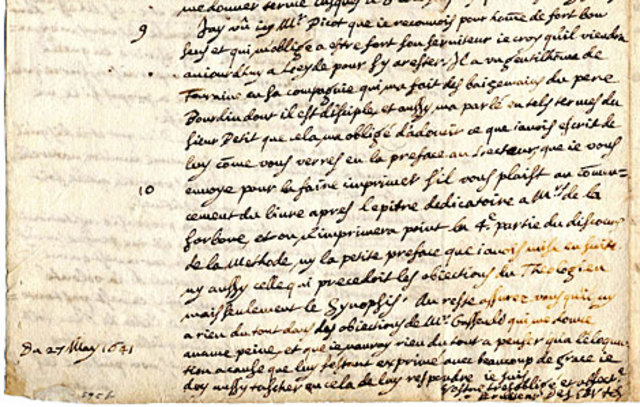 me donner
9
Jay vû icy Mr Picot que ie reconnois pour home de fort bon
sens et qui m'oblige a estre fort son serviteur ie croy qu'il viendra
auiourd'huy a Leyde pour s'y arester, Il a un gentilhome de
Touraine en sa compagnie qui m'a fait des baizemains du pere
Bourdin dont il est disciple, et aussy m'a parlé en tels termes du
sieur Petit que cela m'a obligé d'adoucir ce que i'avois escrit de
luy come vous verres en la preface au Lecteur, que ie vous
10
envoye pour la faire imprimer s'il vous plaist au comen-
cement du livre apres l'epitre dedicatoire a Mrs de la
Sorbone, et on n'imprimera point la 4e partie du discours
de la Methode, ny la petite preface que i'avois mise en suite
ny aussy celle qui precedoit les obiections du Theologien
mais seulement le Synopsis. Au reste assurez vous qu'il n'y
a rien du tout dans des obiections de Mr Gassendi qui me donne
aucune peine, et que ie n'auray rien du tout a penser qu'a l'eloqu-
tion a cause que luy s'estant exprimé avec beaucoup de grace ie
Du 27 May 1641
doy aussy tascher en cela de luy respondre ie suis
Vostre tres obligé et affect.é
serviteur Descartes